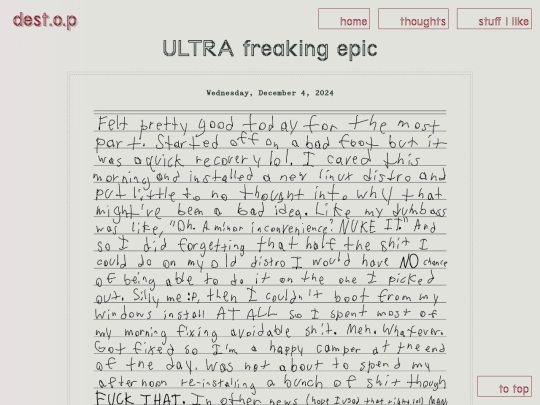 dest.o.p
home
thoughts
stuff I like
ULTRA freaking epic
Wednesday, December 4, 2024
Felt pretty good today for the most
part. Started off on a bad foot but it
was a quick recovery lol. I caved this
morning and installed a new linux distro and
put little to no thought into why that
might've been a bad idea. Like my dumbass
was like, "Oh. A minor inconvenience? NUKE IT." And
so I did forgetting that half the shit I
could do on my old distro I would have NO chance
of being able to do it on the one I picked
out. Silly me :p, then I couldn't boot from my
Windows install AT ALL so I spent most of
my morning fixing avoidable shit. Meh. Whatever.
Got fixed so I'm a happy camper at the end
of the day. Was not about to spend my
afternoon re-installing a bunch of shit though
FUCK THAT. In other news (hope I used that right lol) MAN
to top